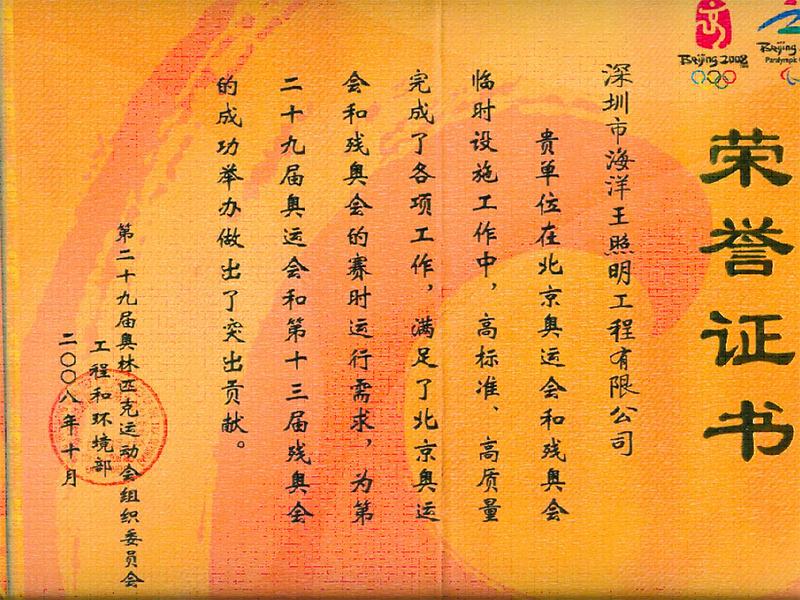 荣誉证书
Beijing 2008
Beijing
Paralympic
深圳市海洋王照明工程有限公司
贵单位在北京奥运会和残奥会
临时设施工作中，高标准、高质量
完成了各项工作，满足了北京奥运
会和残奥会的赛时运行需求，为第
二十九届奥运会和第十三届残奥会
的成功举办做出了突出贡献。
第二十九届奥林匹克运动会组织委员会
工程和环境部
二〇〇八年十月